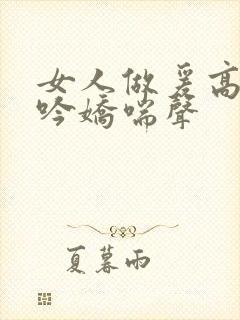 女人做爰高
吟嬌喘聲
夏暮雨